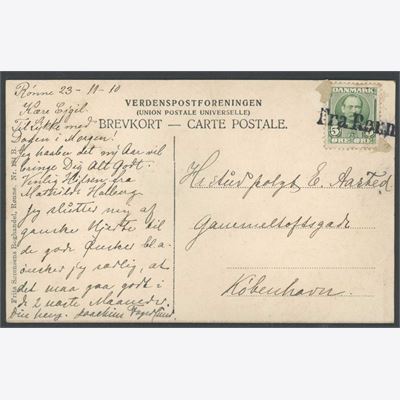 Rønne 23-11-10
Kære Ejgil.
Til Lykke med
Dagen i Morgen!
Jeg haaber det ny Aar vil
bringe Dig Alt Godt.
Venlig Hilsen fra
Mathilde
Jeg slutter mig af
ganske Hjerte til
de gode Ønsker bl.a.
ønsker jeg særlig, at
det maa gaa godt i
de 2 næste Maaneder.
Din heng. Joachim
Frits Sørensens Boghandel, Rønne. Nr.
VERDENSPOSTFORENINGEN
(UNION POSTALE UNIVERSELLE)
BREVKORT — CARTE POSTALE.
DANMARK
5 5
ØRE ØRE
Fra Rønn
Hr. stud. polyt. E. Aasted
Gammeltoftsgade
København.